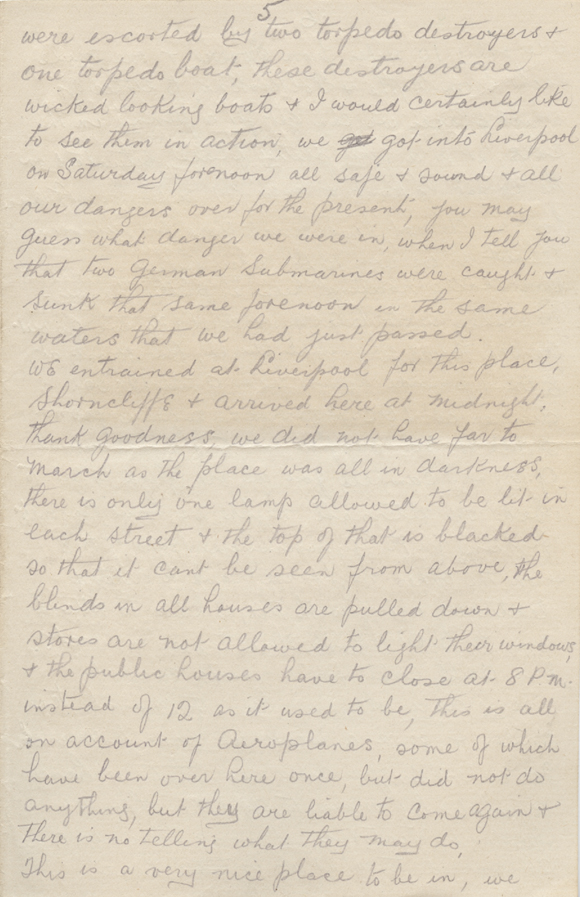 5
were escorted by two torpedo destroyers &
one torpedo boat, these destroyers are
wicked looking boats & I would certainly like
to see them in action, we got got into Liverpool
on Saturday forenoon all safe & sound & all
our dangers over for the present, you may
guess what danger we were in, when I tell you
that two German Submarines were caught &
sunk that same forenoon in the same
waters that we had just passed.
We entrained at Liverpool for this place,
Shorncliffe & arrived here at midnight,
thank goodness, we did not have far to
march as the place was all in darkness,
there is only one lamp allowed to be lit in
each street & the top of that is blacked
so that it cant be seen from above, the
blinds in all houses are pulled down &
stores are not allowed to light their windows
& the public houses have to close at 8 P.m.
instead of 12 as it used to be, this is all
on account of Aeroplanes, some of which
have been over here once, but did not do
anything, but they are liable to come again &
there is no telling what they may do,
This is a very nice place to be in, we